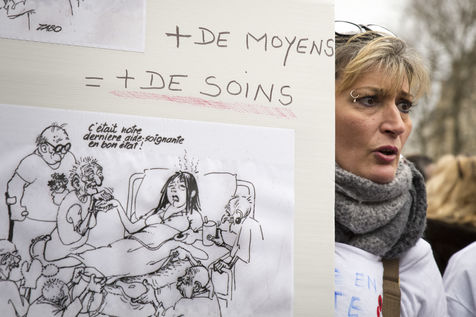 ZABO
+ DE MOYENS
= + DE SOINS
C'était notre
dernière aide-soignante
en bon état !
E EN
TE